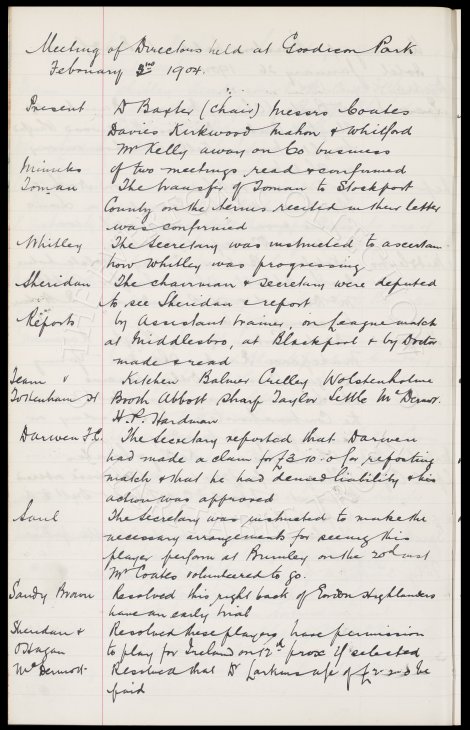 Meeting of Directors held at Goodison Park
February 3rd 1904.
Present Dr Baxter (Chair) Messrs Coates
Davies Kirkwood Mahon & Whitford
Mr Kelly away on Co business
Minutes of two meetings read & confirmed
Toman The transfer of Toman to Stockport
County on the terms recited in their letter
was confirmed
Whitley The Secretary was instructed to ascertain
how Whitley was progressing
Sheridan The Chairman & Secretary were deputed
to see Sheridan & report
Reports by Assistant trainer, on League match
at Middlesbro, at Blackpool & by Doctor
made & read
Team v Kitchen Balmer Crelley Wolstenholme
Tottenham H Booth Abbott Sharp Taylor Settle McDermott
H.P. Hardman
Darwen F.C. The Secretary reported that Darwen
had made a claim for £3-10-0 for reporting
match & that he had denied liability & his
action was approved
Saul The Secretary was instructed to make the
necessary arrangements for seeing this
player perform at Burnley on the 20th inst
Mr Coates volunteered to go.
Sandy Brown Resolved this right back of Gordon Highlanders
have an early trial
Sheridan & Resolved these players have permission
O'Hagan to play for Ireland on 12th prox if selected
McDermott Resolved that Dr Larkins a/c of £2-2-0 be
paid